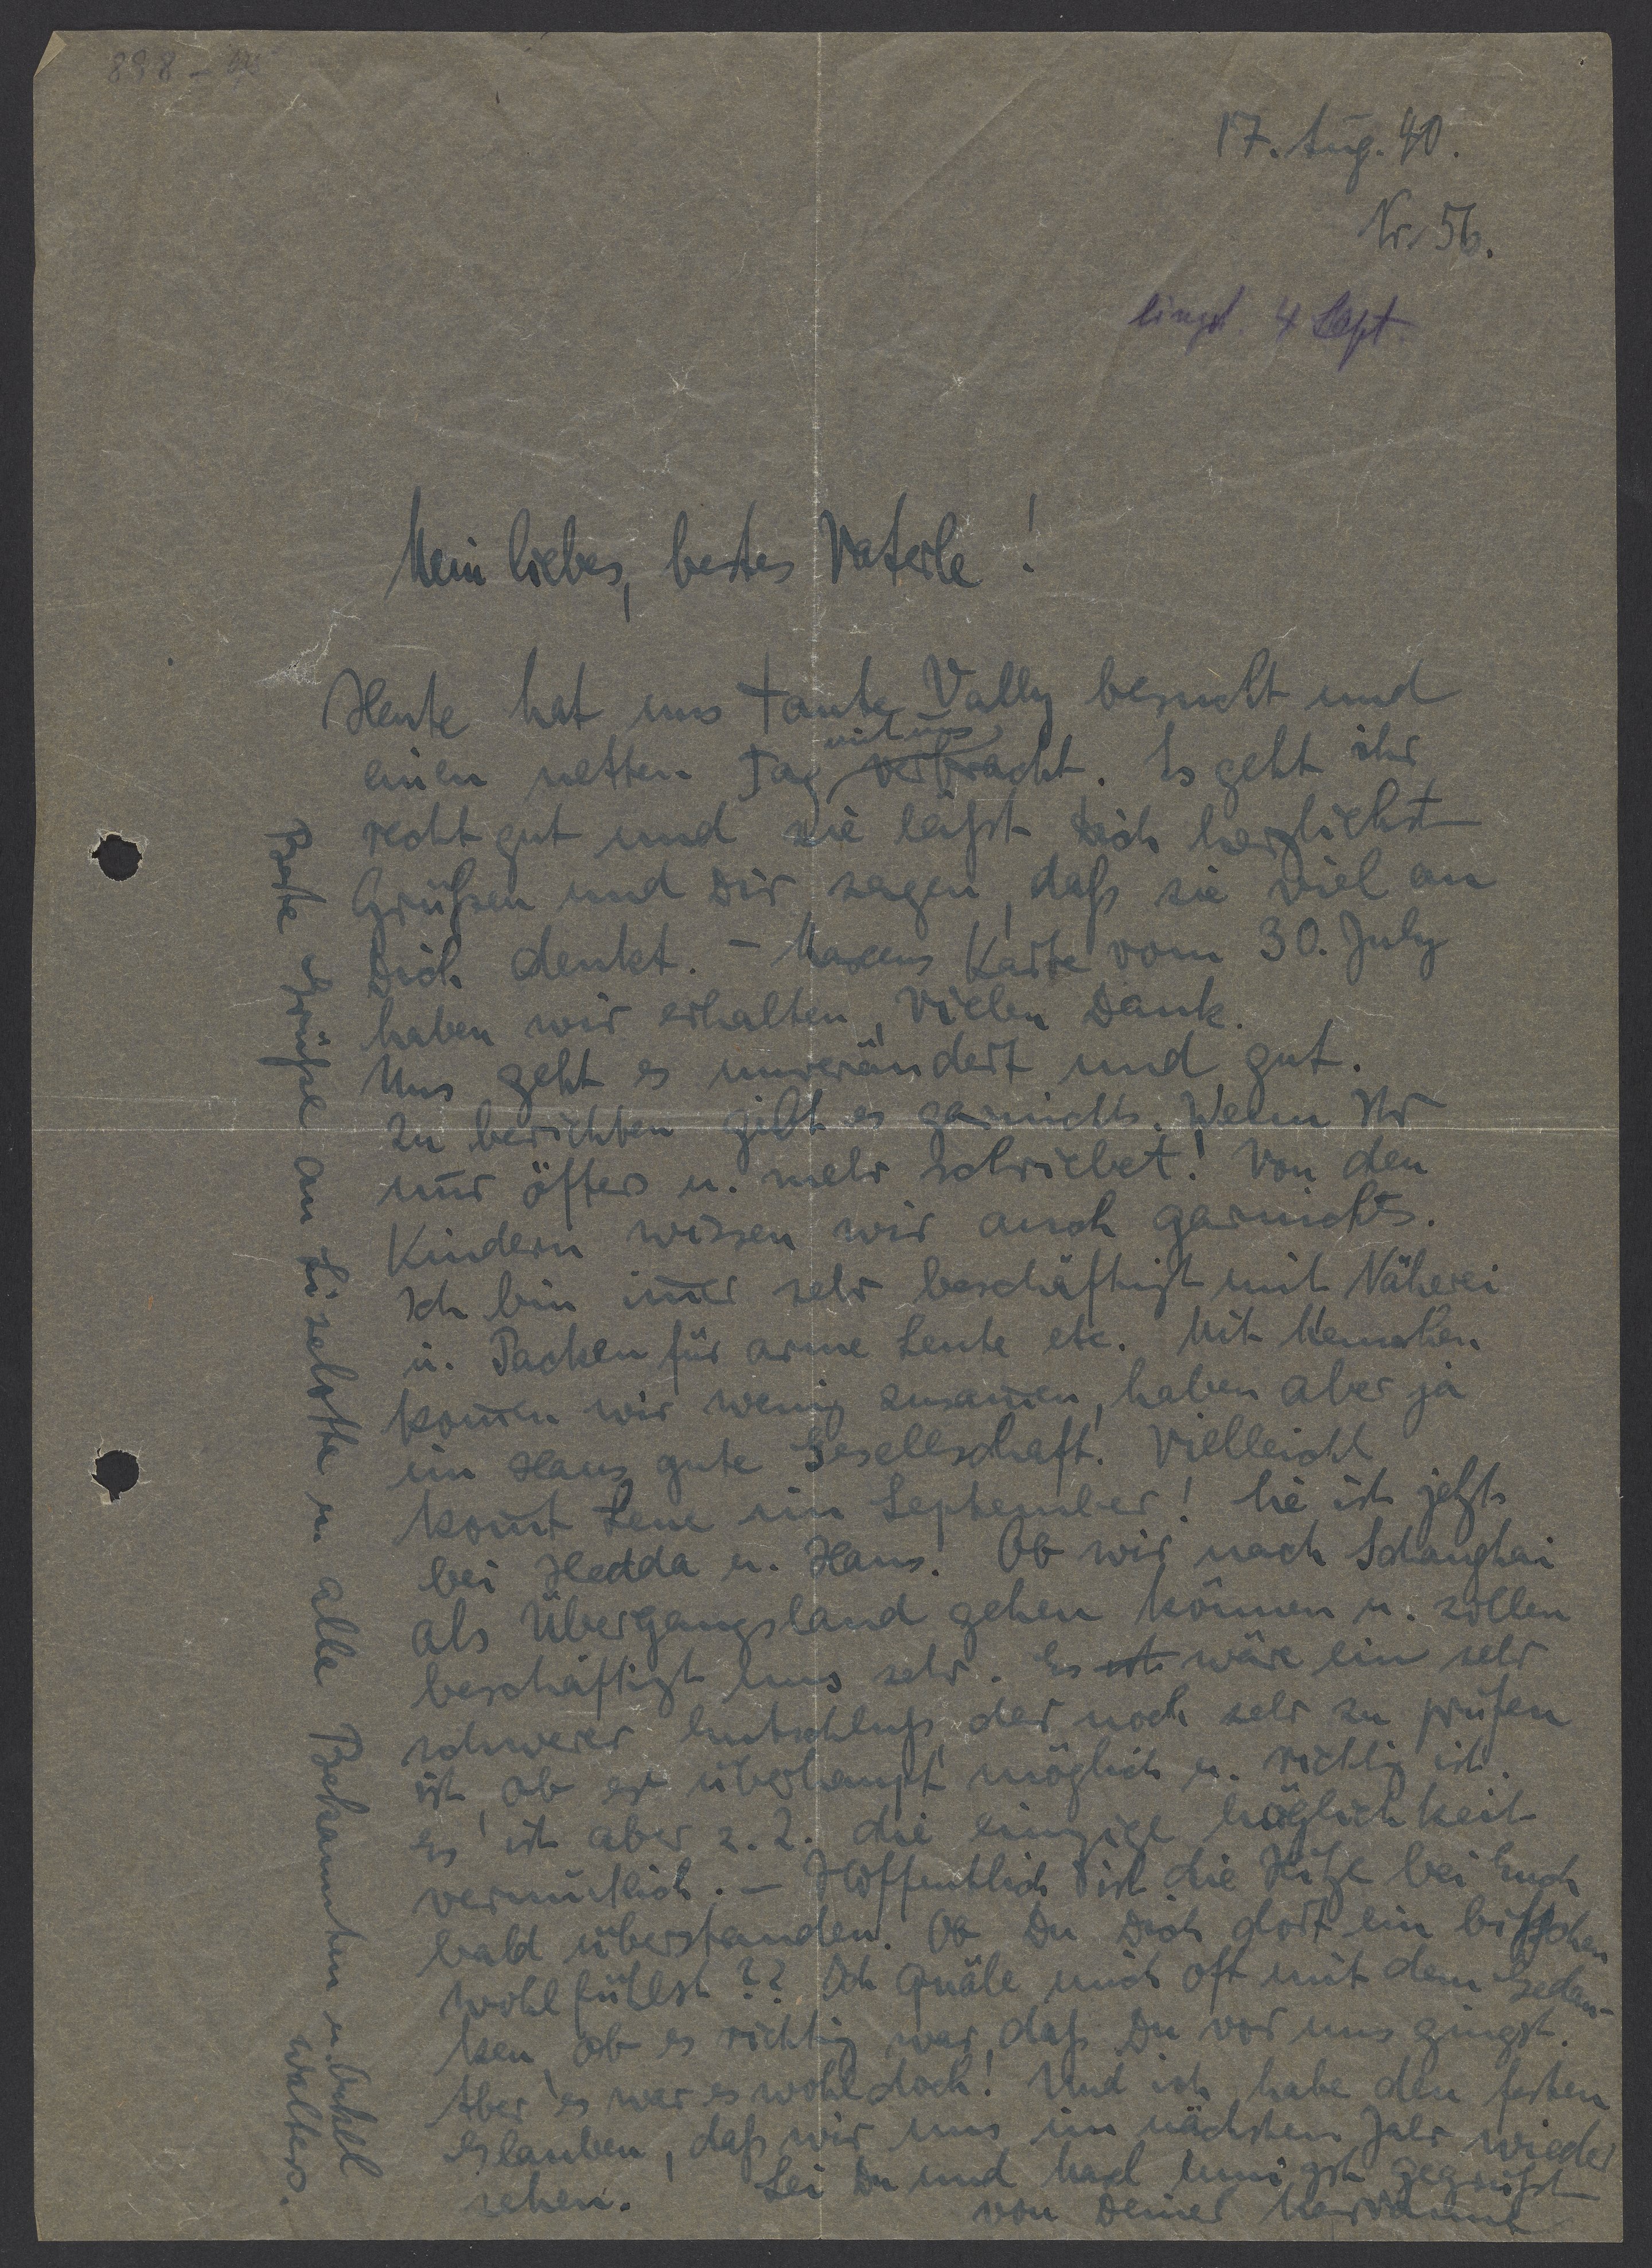 888 -
17. Aug. 40.
Nr. 56.
eingt. 4 Sept.
Mein liebes, bestes Vaterle!
Heute hat uns Tante Vally besucht und
mit uns
einen netten Tag verbracht. Es geht ihr
recht gut und sie läßt Dich herzlichst
Grüßen und Dir sagen, daß sie viel an
Dich denkt. – Maxens Karte vom 30. July
haben wir erhalten, vielen Dank.
Uns geht es unverändert und gut.
Zu berichten gibt es garnichts. Wenn Ihr
nur öfters u. mehr schriebet! Von den
Kindern wissen wir auch garnichts.
Ich bin im̅er sehr beschäftigt mit Näherei
u. Packen für arme Leute etc. Mit Menschen
kom̅en wir wenig zusam̅en, haben aber ja
im Haus gute Gesellschaft. Vielleicht
kom̅t Lene im September! Sie ist jetzt
bei Hedda u. Hans! Ob wir nach Schanghai
als Übergangsland gehen können u. sollen
beschäftigt uns sehr. Es ist wäre ein sehr
schwerer Entschluß, der noch sehr zu prüfen
ist, ob er überhaupt möglich u. richtig ist.
Es ist aber z. Z. die einzige Möglichkeit
vermutlich. – Hoffentlich ist die Hitze bei Euch
bald überstanden. Ob Du Dich dort ein bißchen
wohl fühlst?? Ich quäle mich oft mit dem Gedan-
ken, ob es richtig war, daß Du vor uns gingst.
Aber es war es wohl doch! Und ich habe den festen
Glauben, daß wir uns im nächsten Jahr wieder
sehen. Sei Du und Maxl innigst gegrüßt
von Deiner Marianne
Beste Grüße an Liselotte u. alle Bekannten u. Onkel
Walters.